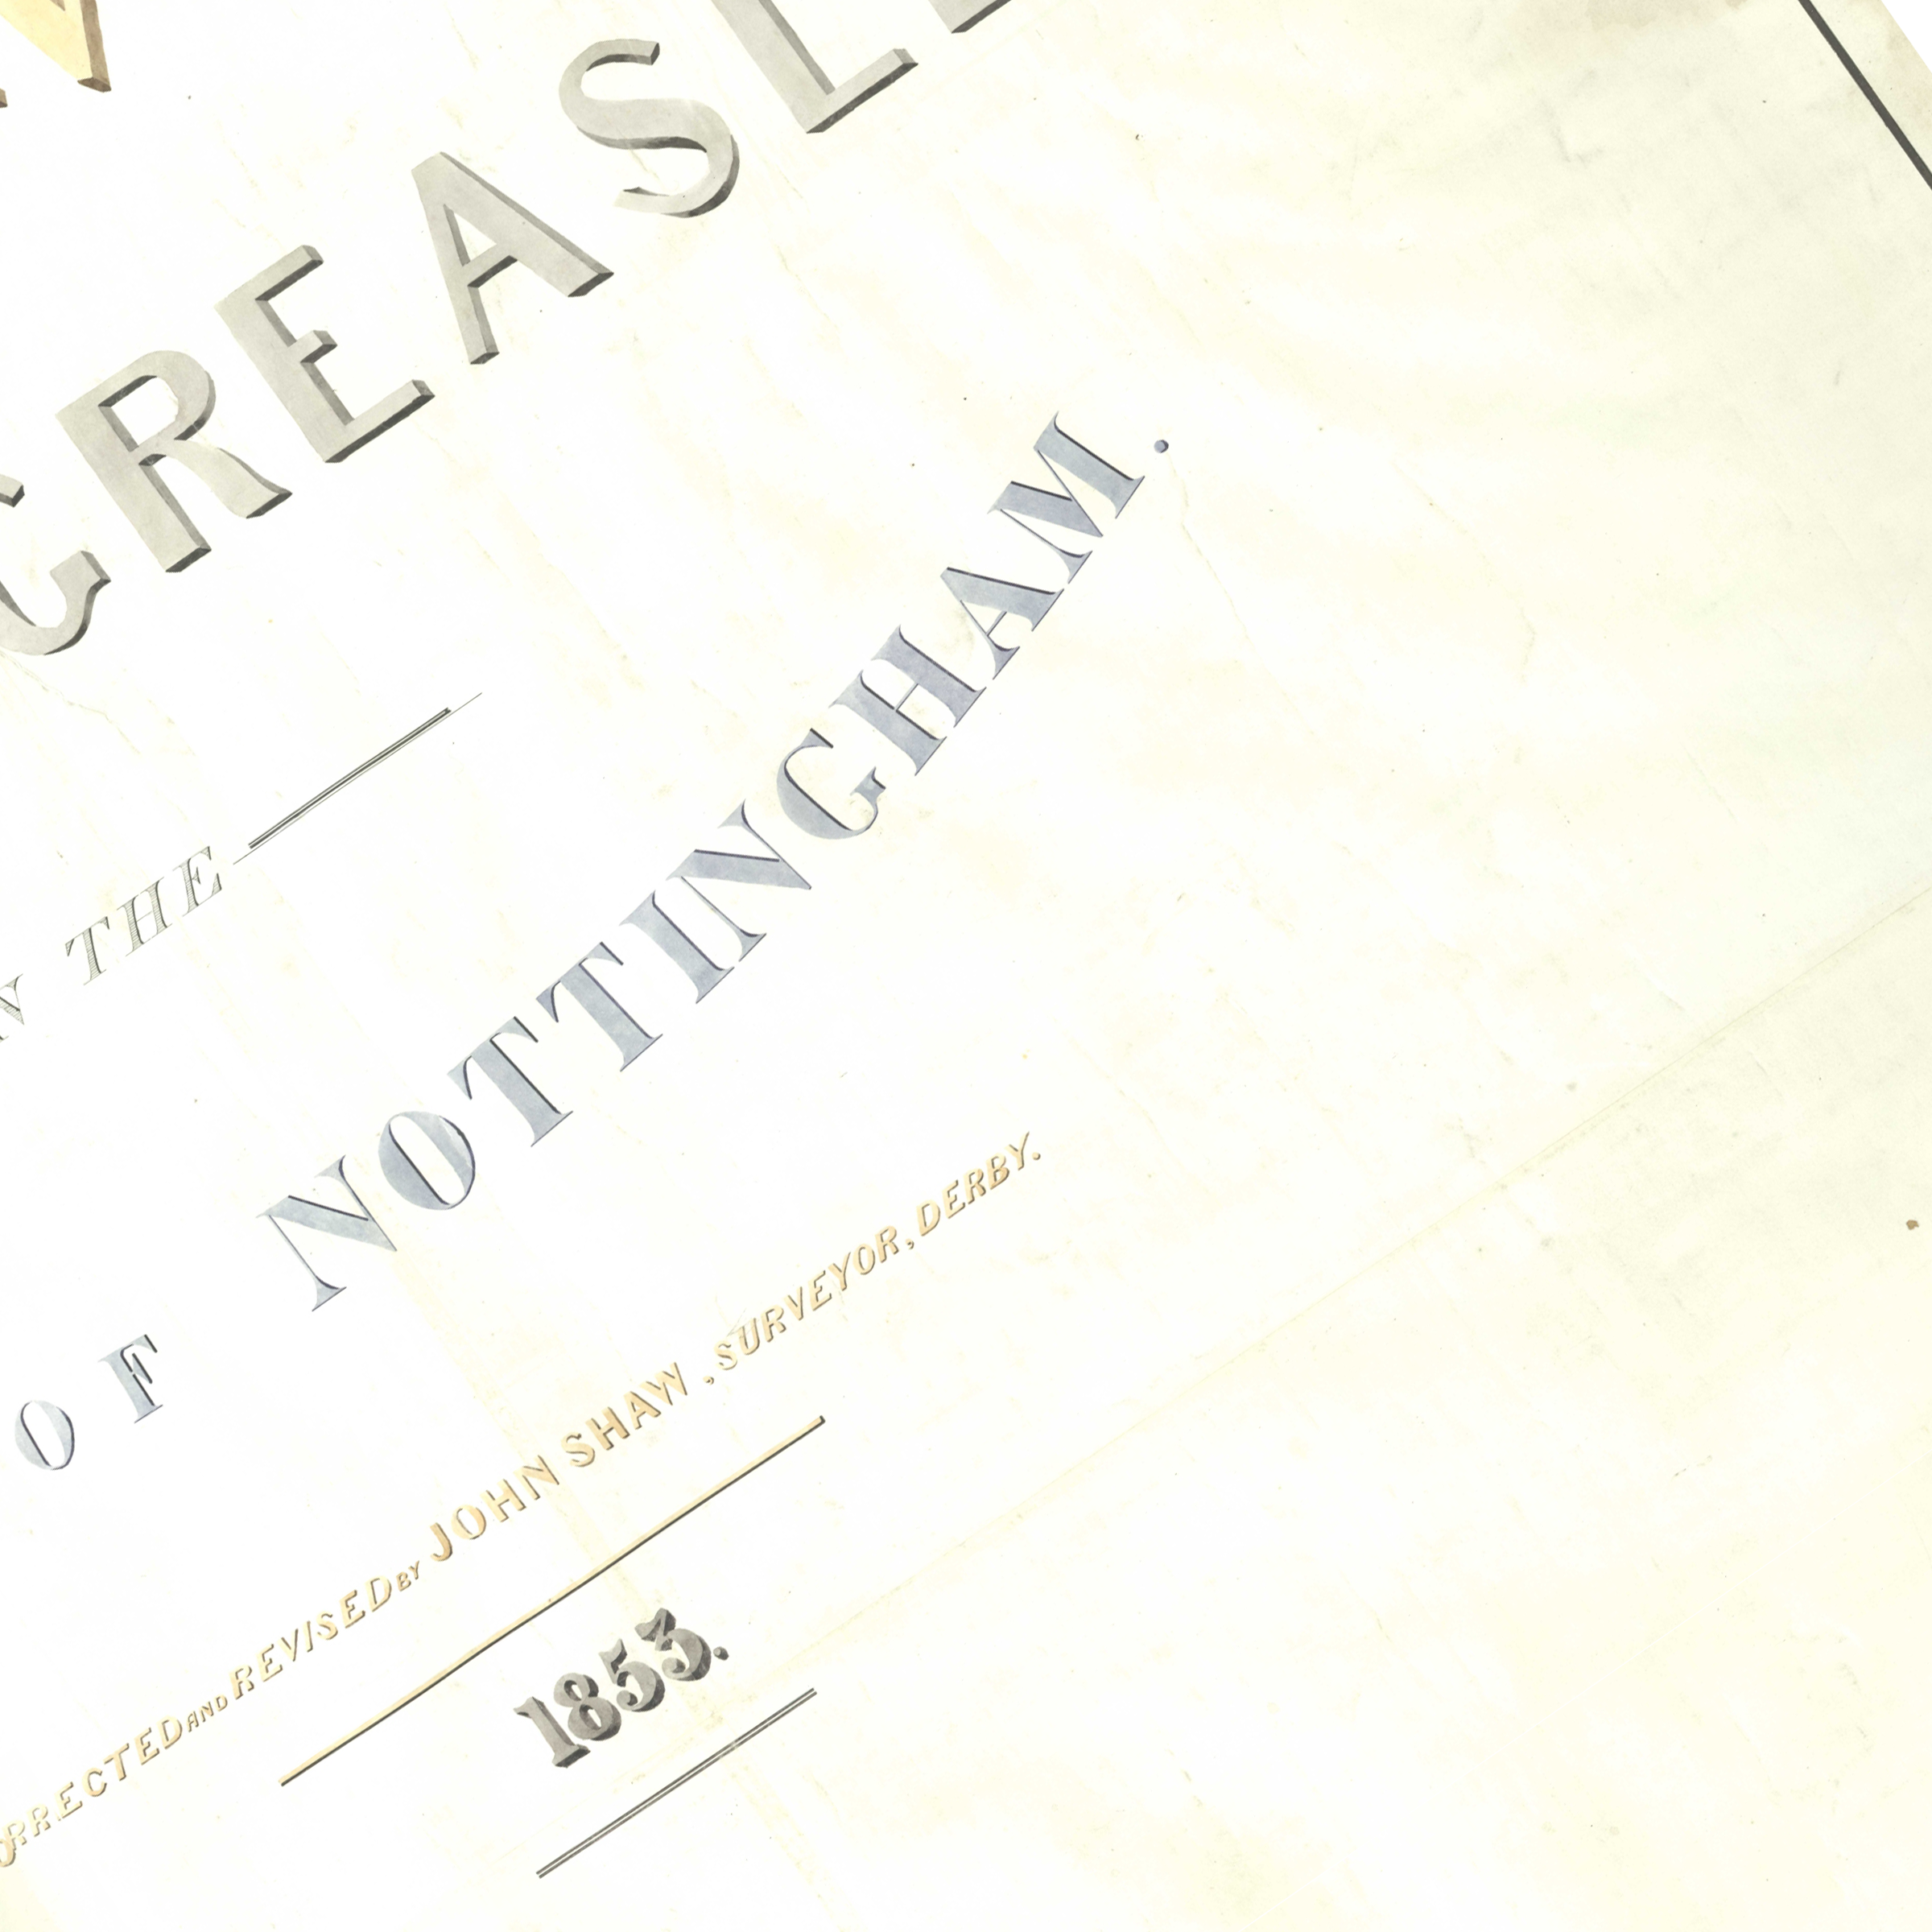 GREASL
THE
OF NOTTINGHAM.
RRECTED AND REVISED BY JOHN SHAW, SURVEYOR, DERBY.
1853.